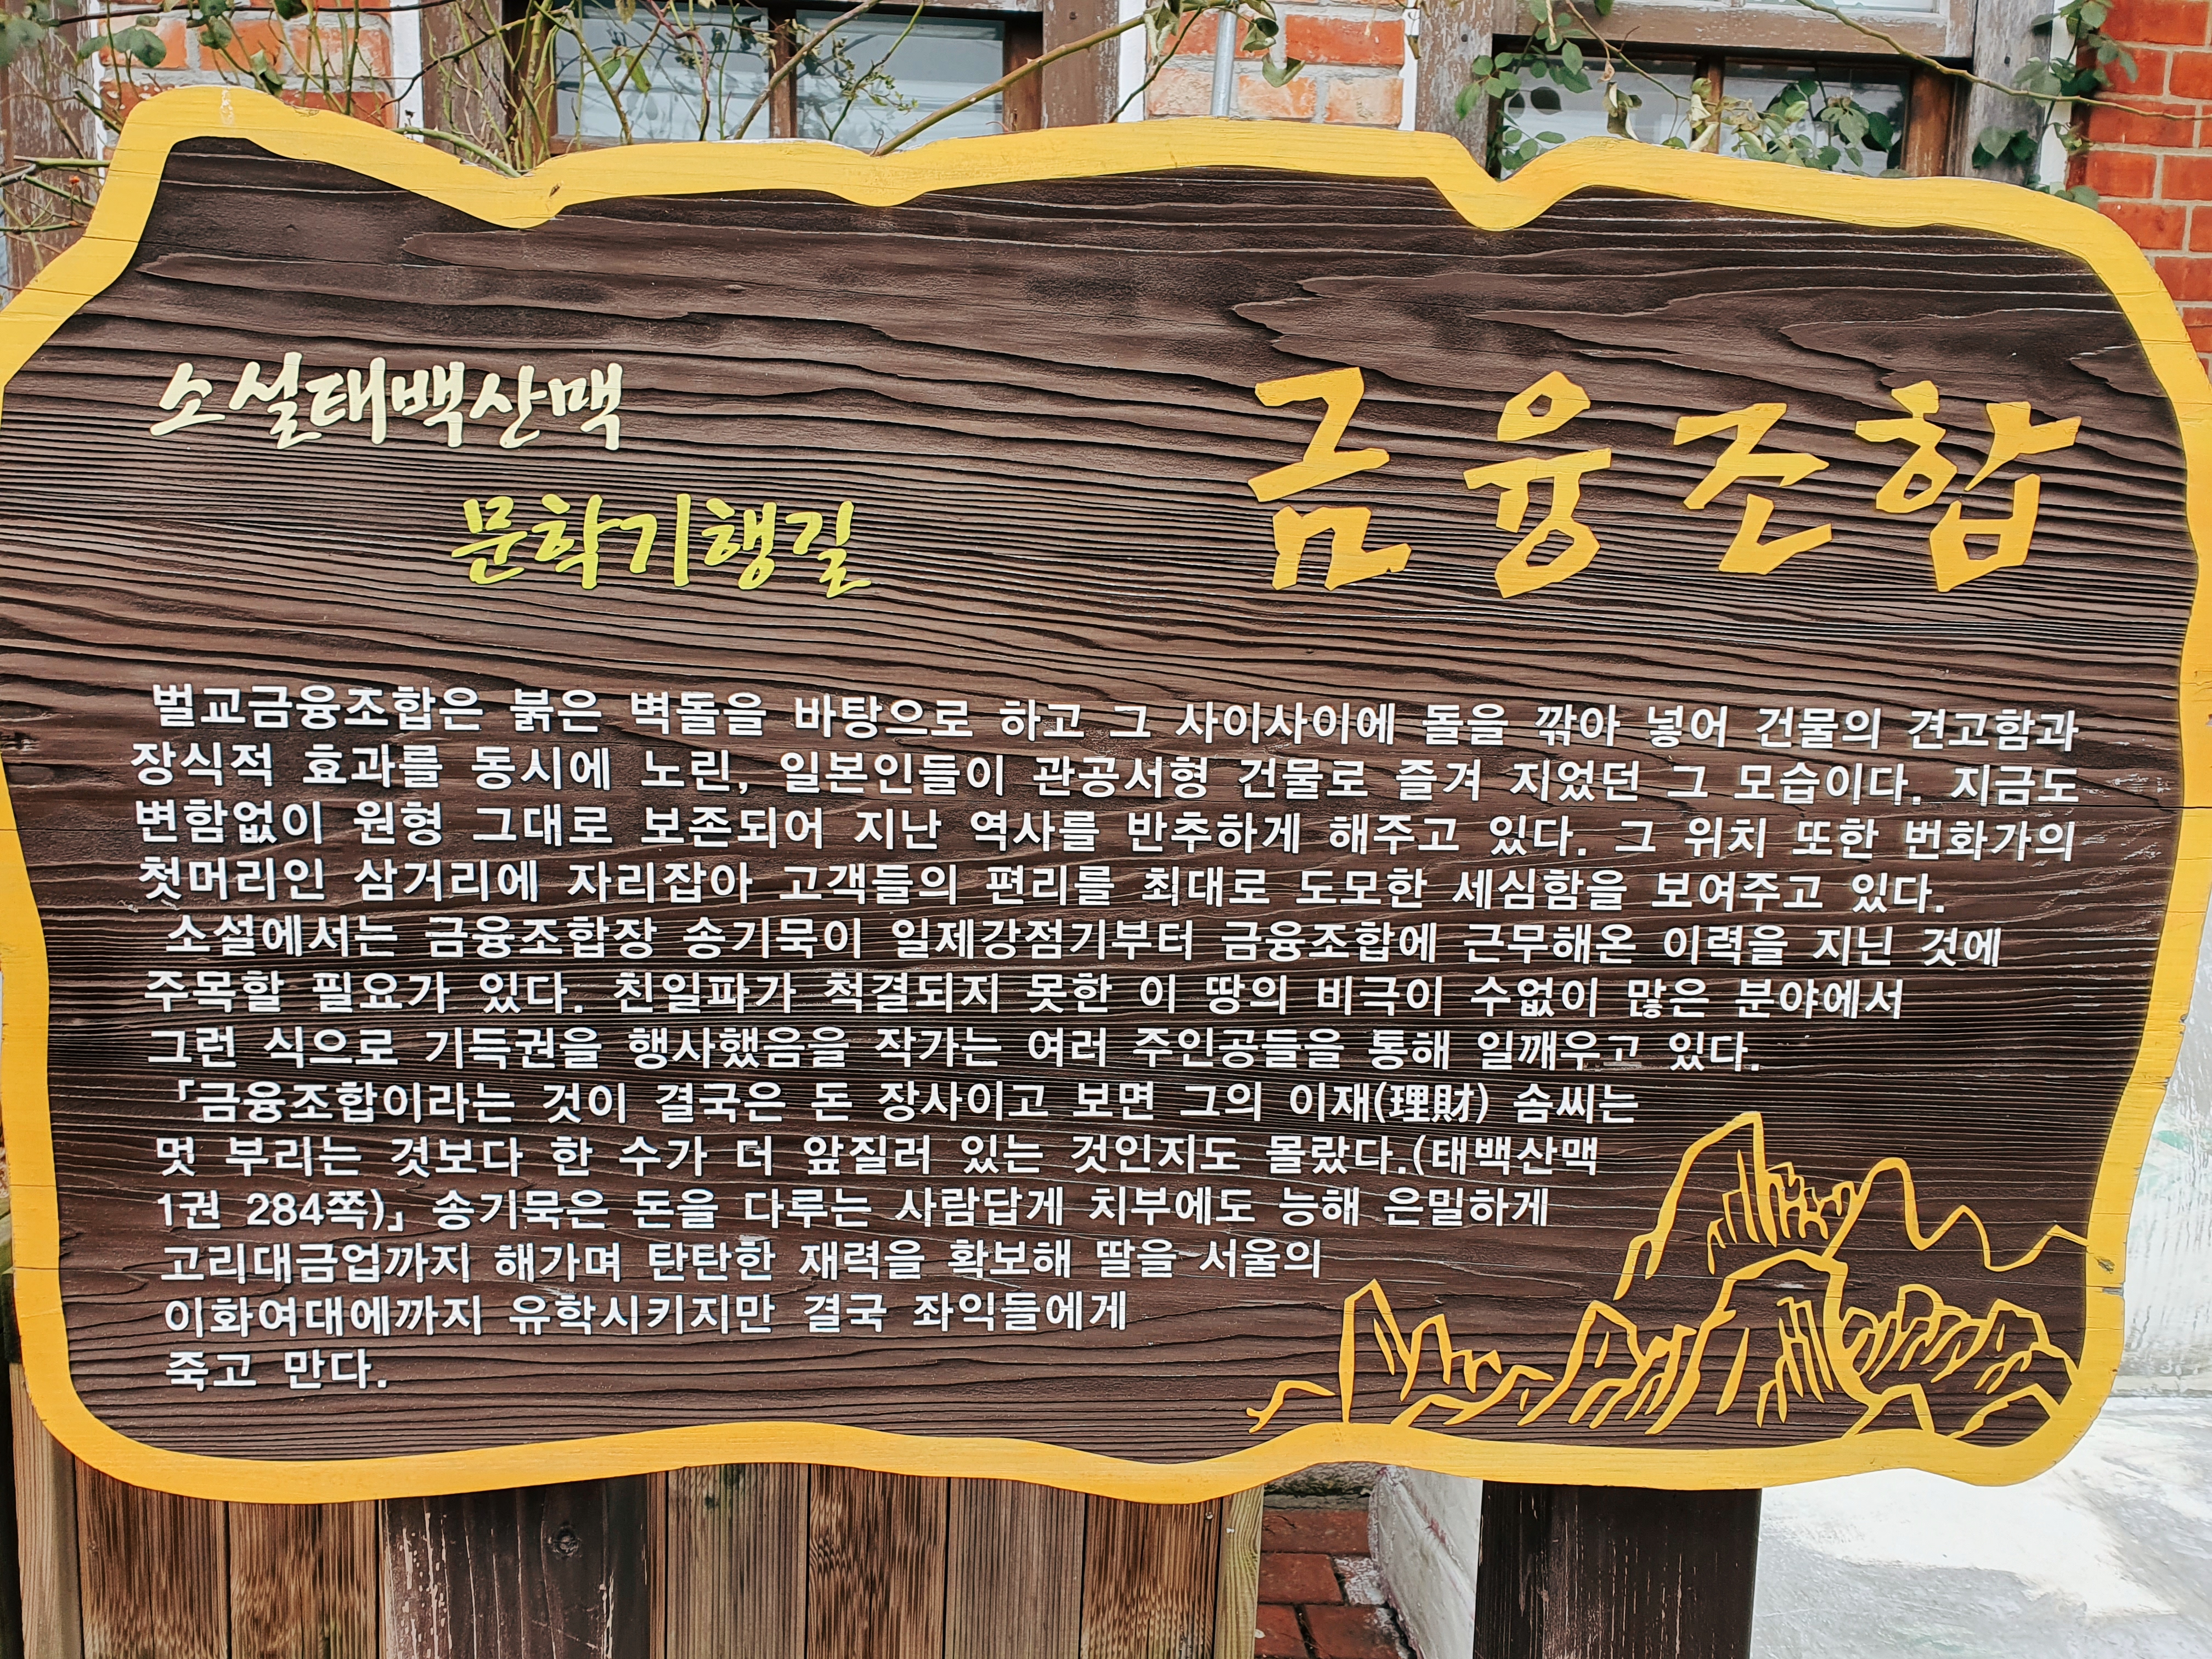 소설태백산맥
문학기행길
금융조합
벌교금융조합은 붉은 벽돌을 바탕으로 하고 그 사이사이에 돌을 깎아 넣어 건물의 견고함과
장식적 효과를 동시에 노린, 일본인들이 관공서형 건물로 즐겨 지었던 그 모습이다. 지금도
변함없이 원형 그대로 보존되어 지난 역사를 반추하게 해주고 있다. 그 위치 또한 번화가의
첫머리인 삼거리에 자리잡아 고객들의 편리를 최대로 도모한 세심함을 보여주고 있다.
소설에서는 금융조합장 송기묵이 일제강점기부터 금융조합에 근무해온 이력을 지닌 것에
주목할 필요가 있다. 친일파가 척결되지 못한 이 땅의 비극이 수없이 많은 분야에서
그런 식으로 기득권을 행사했음을 작가는 여러 주인공들을 통해 일깨우고 있다.
「금융조합이라는 것이 결국은 돈 장사이고 보면 그의 이재(理財) 솜씨는
멋 부리는 것보다 한 수가 더 앞질러 있는 것인지도 몰랐다.(태백산맥
1권 284쪽)」 송기묵은 돈을 다루는 사람답게 치부에도 능해 은밀하게
고리대금업까지 해가며 탄탄한 재력을 확보해 딸을 서울의
이화여대에까지 유학시키지만 결국 좌익들에게
죽고 만다.